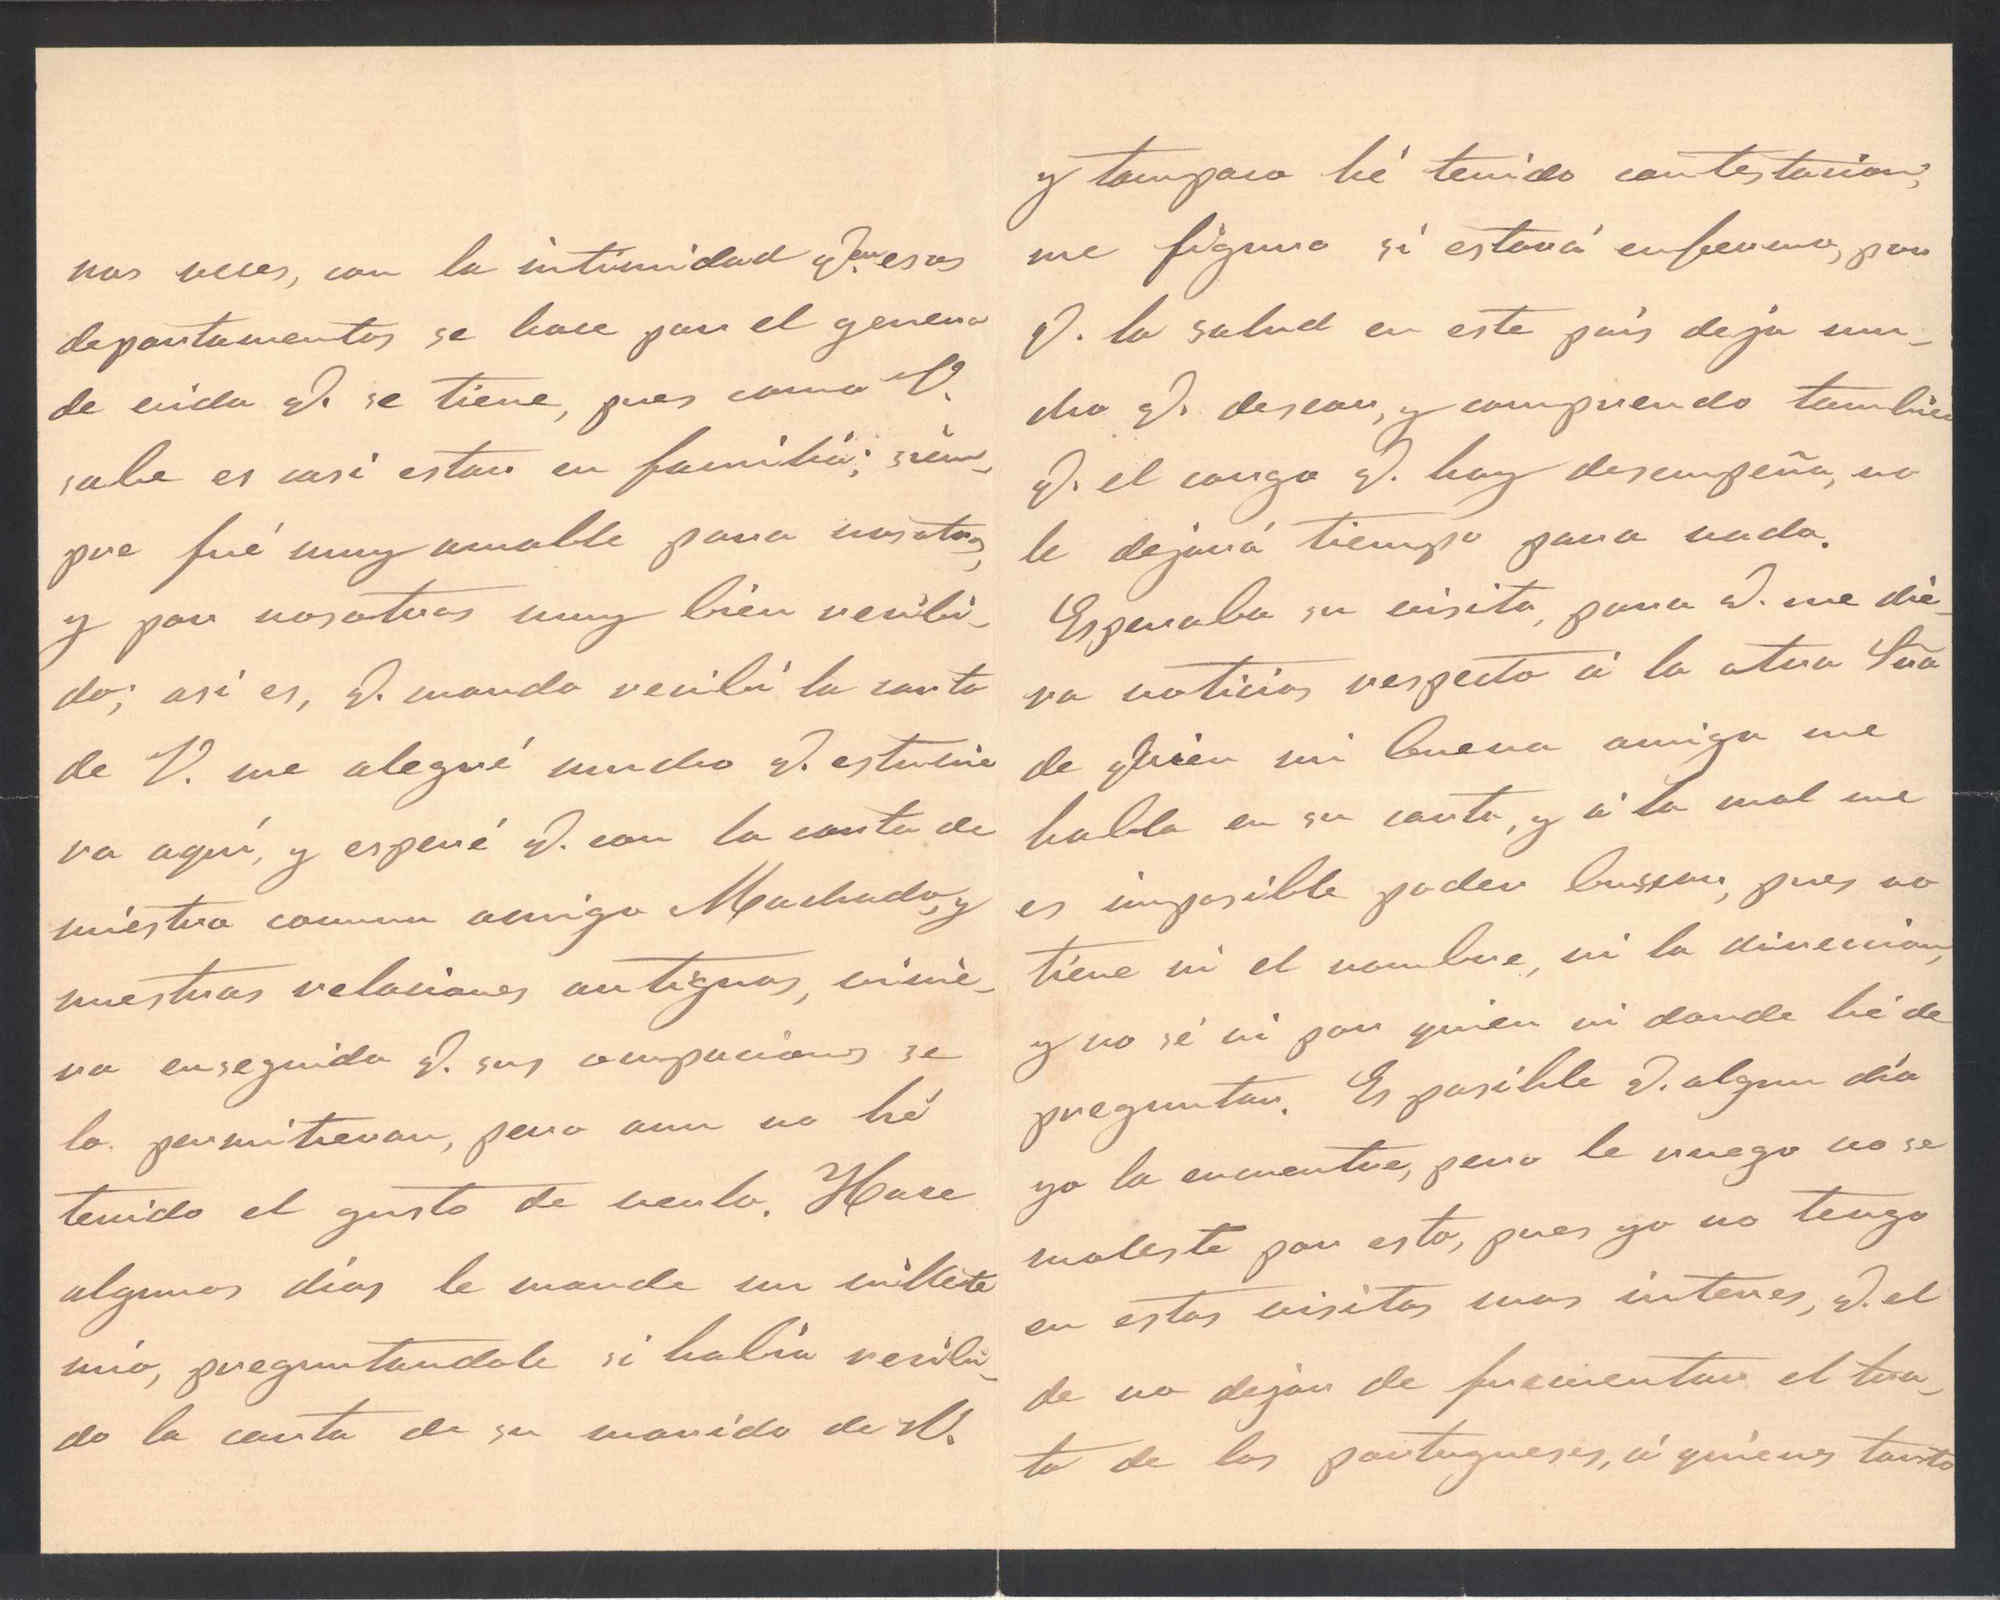 nas veces, con la intimidad q. en esos
departamentos se hace por el genero
de vida q. se tiene, pues como V.
sabe es casi estar en familia; siem-
pre fué muy amable para nosotros,
y por nosotros muy bien recibi-
do; asi es, q. cuando recibí la carta
de V. me alegré mucho q. estuvie
ra aquí, y esperé q. con la carta de
nuestro comun amigo Machado, y
nuestras relaciones antiguas, vinie-
ra enseguida q. sus ocupaciones se
lo permitieran, pero aun no hé
tenido el gusto de verlo. Hace
algunos días le mande un villete
mio, preguntandole si habia recibi-
do la carta de su marido de V.
y tampoco hé tenido contestacion;
me figuro si estará enfermo, por
q. la salud en este país deja mu-
cho q. desear, y comprendo tambien
q. el cargo q. hoy desempeña, no
le dejará tiempo para nada.
Esperaba su visita, para q. me die-
ra noticias respecto á la otra Sña
de quien mi buena amiga me
habla en su carta, y á la cual me
es imposible poder buscar, pues no
tiene ni el nombre, ni la direccion,
y no sé ni por quien ni donde hé de
preguntar. Es posible q. algun día
yo la encuentre, pero le ruego no se
moleste por esto, pues yo no tengo
en estas visitas mas interes, q. el
de no dejar de frecuentar el tra-
to de los portugueses, á quienes tanto